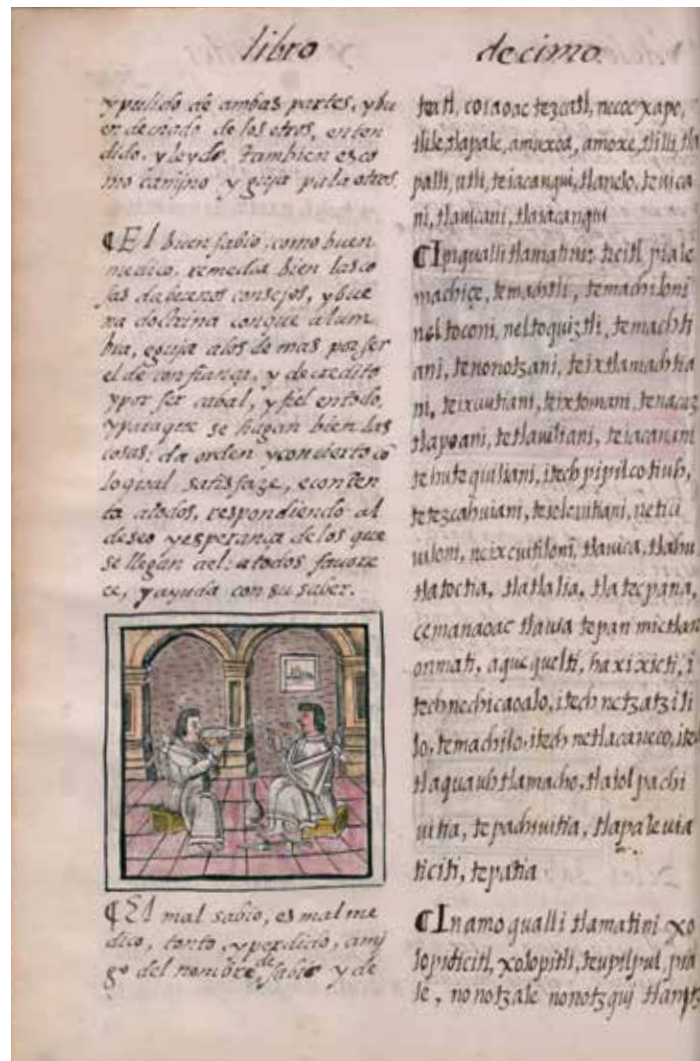 libro decimo.
y pulido de ambas partes, y bu
en dechado de los otros, enten
dido, y leydo. tambien es co
mo camino y guja pa los otros.
¶ El buen sabio, como buen
medico, remedia bien las co
sas da buenos consejos, y bue
na doctrina con que alum
bra, e guja a los de mas por ser
el de confiança, y de credito
y por ser cabal, y fiel en todo,
y para que se hagan bien las
cosas: da orden y concierto cõ
lo qual satisfaze, e conten
ta a todos, respondiendo al
deseo y esperança de los que
se llegan a el: a todos fauore
ce, y ayuda con su saber.
¶ El mal sabio, es mal me
dico, tonto, y perdido, ami
go del nombre de sabio y de
tezcatl, coiaoac tezcatl, necoc xapo,
tlile, tlapale, amuxoa, amoxe, tlilli, tla
palli, utli, teiacanqui, tlanelo, teuica
ni, tlauicani, tlaiacanqui
¶ In qualli tlamatini: ticitl piale
machiçe, temachtli, temachiloni
neltoconi, neltoquiztli, temachti
ani, tenonotzani, teixtlamachtia
ni, teixcuitiani, teixtomani, tenacaz
tlapoani, tetlauiliani, teiacanani
tehutequiliani, itech pipilcotiuh,
tetezcahuiani, teyolcuitiani, neticiui
loni, neixcuitiloni, tlauica, tlahu
tlatoctia, tlatlalia, tlatecpana,
cemanaoac tlauia tepan mictlan
onmati, aquequelti, haxixicti, i
tech nechicaoalo, itech netzatzili
lo, temachilo, itech netlacaneco, itech
tlaquauhtlamacho, tlaiolpachi
uitia, tepachiuitia, tlapaleuia
ticiti, tepatia
¶ In amo qualli tlamatini xo
lopiticitl, xolopitli, teupilpul, pia
le, nonotzale nonotzqui